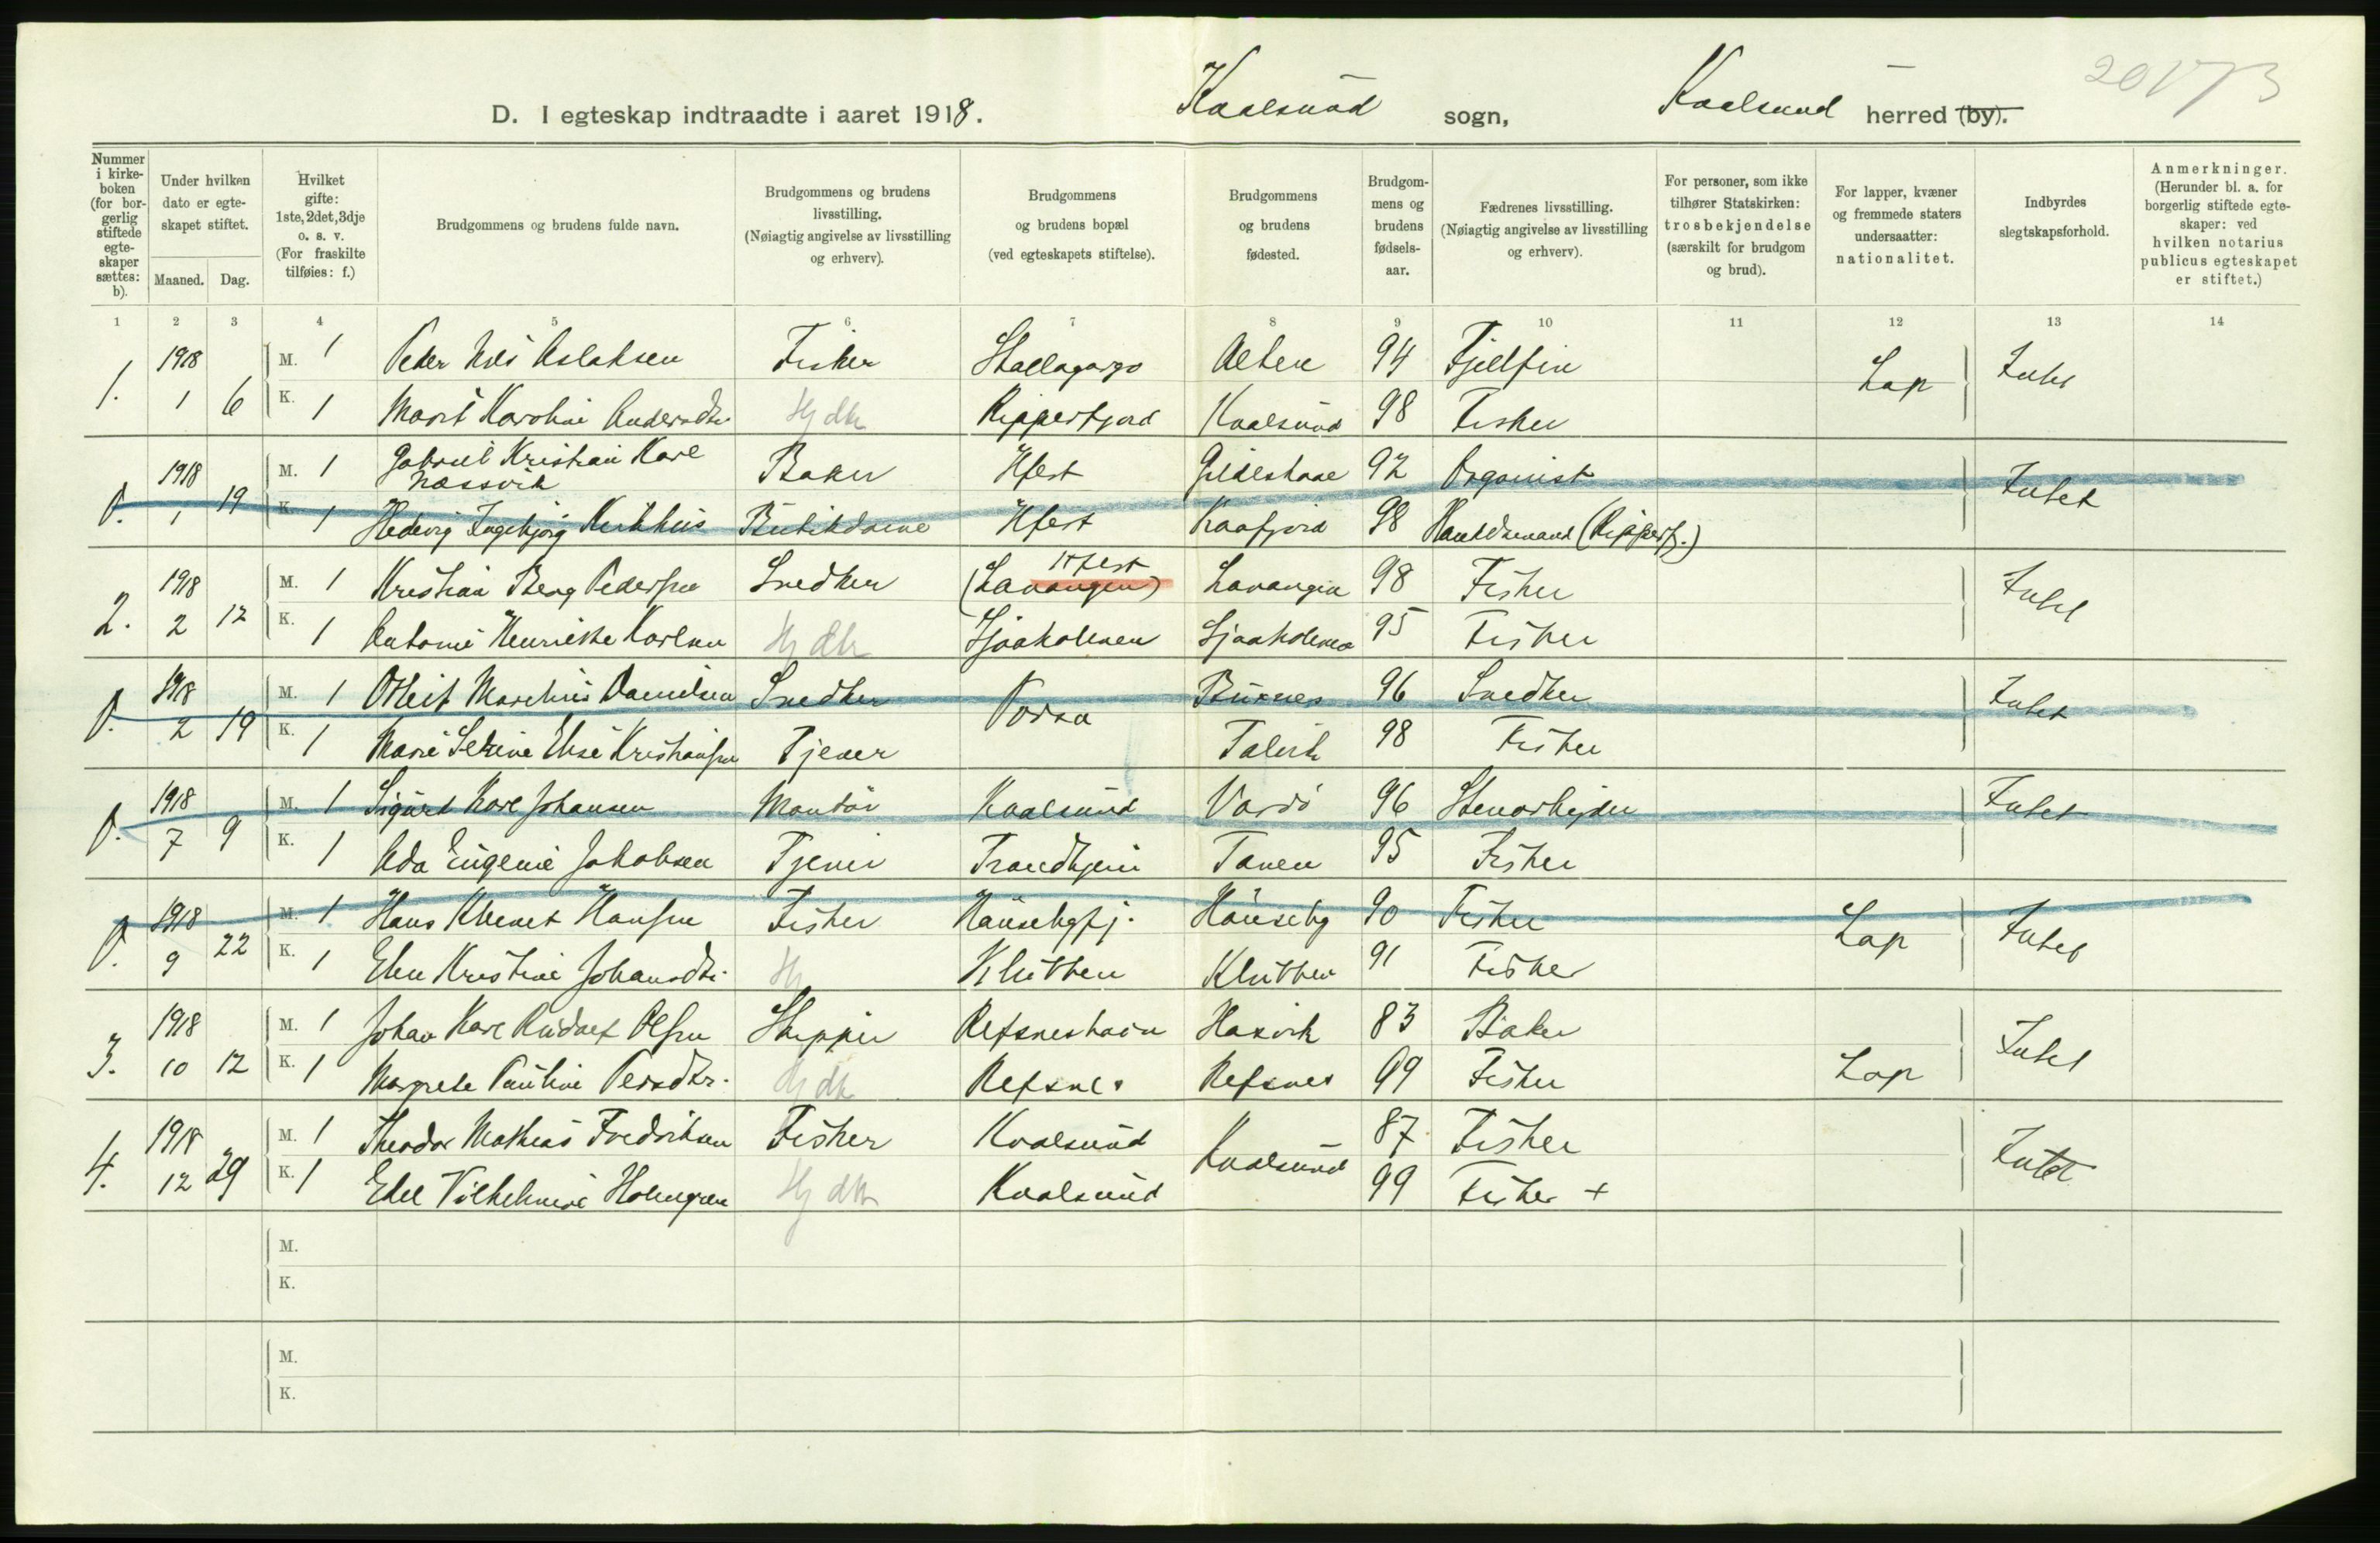 D. I egteskap indtraadte i aaret 1918. Kvalsund sogn, Kvalsund herred (by).
Nummer i kirkeboken (for borgerlig stiftede egteskaper sættes: b).
Under hvilken dato er egteskapet stiftet.
Maaned. Dag.
Hvilket gifte: 1ste, 2det, 3dje o. s. v. (For fraskilte tilføies: f.)
Brudgommens og brudens fulde navn.
Brudgommens og brudens livsstilling. (Nøiagtig angivelse av livsstilling og erhverv).
Brudgommens og brudens bopæl (ved egteskapets stiftelse).
Brudgommens og brudens fødested.
Brudgommens og brudens fødselsaar.
Fædrenes livsstilling. (Nøiagtig angivelse av livsstilling og erhverv).
For personer, som ikke tilhører Statskirken: trosbekjendelse (særskilt for brudgom og brud).
For lapper, kvæner og fremmede staters undersaatter: nationalitet.
Indbyrdes slegtskapsforhold.
Anmerkninger. (Herunder bl. a. for borgerlig stiftede egteskaper: ved hvilken notarius publicus egteskapet er stiftet.)
1 2 3 4 5 6 7 8 9 10 11 12 13 14
1. 1918 M. 1 Peder Nils Aslaksen Fisker Skallagargo Alten 94 Fjellfin Lap Intet
1 6 K. 1 Marit Karoline Andersdtr. Hj dtr Repperfjord Kvalsund 98 Fisker
0. 1918 M. 1 Gabriel Kristian Karl Næssvik Baker Hfest Gildeskaal 92 Organist Intet
1 19 K. 1 Hedvig Ingebjørg Kirkhus Butikdame Hfest Kaafjord 98 Handelsmand (Repperfj.)
2. 1918 M. 1 Kristian Berg Pedersen Snedker (Lavangen) Hfest Lavangen 98 Fisker Intet
2 12 K. 1 Antonie Henrikke Karlsen Hj dtr Sjaaholmen Sjaaholmen 95 Fisker
0. 1918 M. 1 Otleif Marelius Danielsen Snedker Porsa Buxnes 96 Snedker Intet
2 19 K. 1 Marie Selvine Elise Kristiansen Tjener Talvik 98 Fisker
0. 1918 M. 1 Sigurd Karl Johansen Montør Kvalsund Vardø 96 Stenarbeider Intet
7 9 K. 1 Alda Eugenie Jakobsen Tjener Trondhjem Tanen 95 Fisker
0. 1918 M. 1 Hans Klemet Hansen Fisker 90 Fisker Lap Intet
9 22 K. 1 Elen Kristine Johansdtr. Hj Klubben Klubben 91 Fisker
3. 1918 M. 1 Johan Karl Rudolf Olsen Skipper Refsneshavn Hasvik 83 Baker Intet
10 12 K. 1 Margrete Pauline Persdtr. Hj dtr Refsnes Refsnes 99 Fisker Lap
4. 1918 M. 1 Theodor Mathias Fredriksen Fisker Kvalsund Kvalsund 87 Fisker Intet
12 29 K. 1 Edel Vilhelmine Holmgren Hj dtr Kvalsund 99 Fisker +
M.
K.
M.
K.